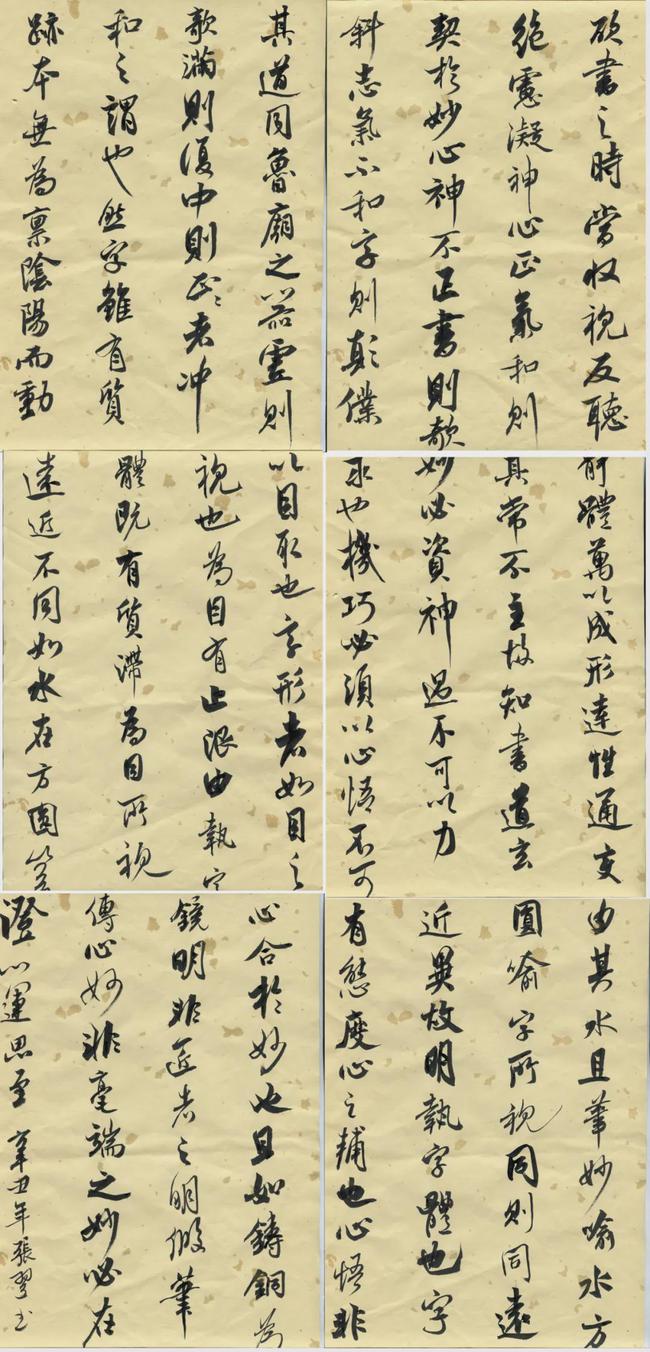 欲書之時當收視反聽
絕慮凝神心正氣和則
契於妙心神不正書則欹
斜志氣不和字則顛僕
其道同魯廟之器虛則
欹滿則復中則正〻者冲
和之謂也然字雖有質
跡本無為禀陰陽而動
體萬以成形達性通变
其常不主故知書道玄
妙必資神遇不可以力
求也機巧必須以心悟不可
以目取也字形者如目之
視也為目有止限由執字
體既有質滯為目所視
遠近不同如水在方圓豈
由其水且筆妙喻水方
圓喻字所視同則同遠
近異故明執字體也字
有態度心之輔也心悟非
心合於妙也且如鑄銅為
鏡明非匠者之明假筆
傳心妙非毫端之妙必在
澄心運思至 辛丑年張翠書